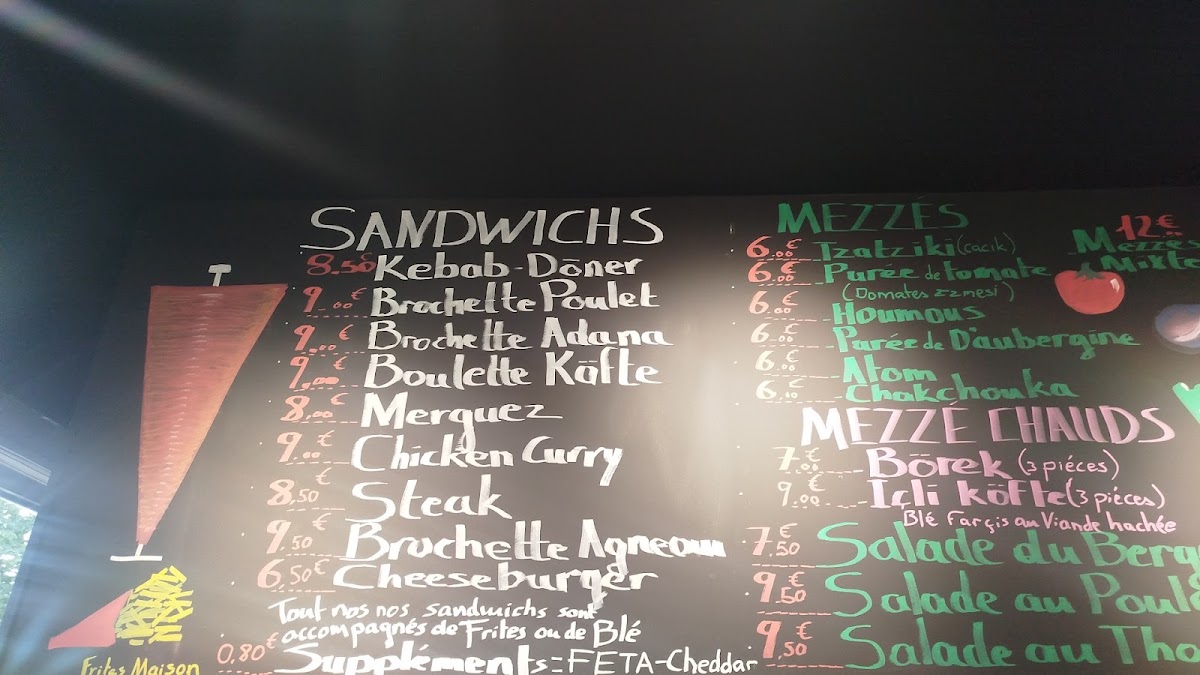 SANDWICHS
8.50€ Kebab-Döner
9.00€ Brochette Poulet
9.00€ Brochette Adana
9.00€ Boulette Köfte
8.00€ Merguez
9.00€ Chicken Curry
8.50€ Steak
9.50€ Brochette Agneau
6.50€ Cheeseburger
Tout nos nos sandwichs sont
accompagnés de Frites ou de Blé
0.80€ Suppléments = FETA-Cheddar
Frites Maison
MEZZÉS
6.00€ Tzatziki (cacik)
6.00€ Purée de tomate
(Domates ezmesi)
6.00€ Houmous
6.00€ Purée de D'aubergine
6.00€ Atom
6.00€ Chakchouka
12€
Mezzés
Mixte
MEZZÉ CHAUDS
7.00€ Börek (3 piéces)
9.00€ Içli köfte (3 piéces)
Blé Farçis au Viande hachée
7.50€ Salade du
9.50€ Salade au
9.50€ Salade au